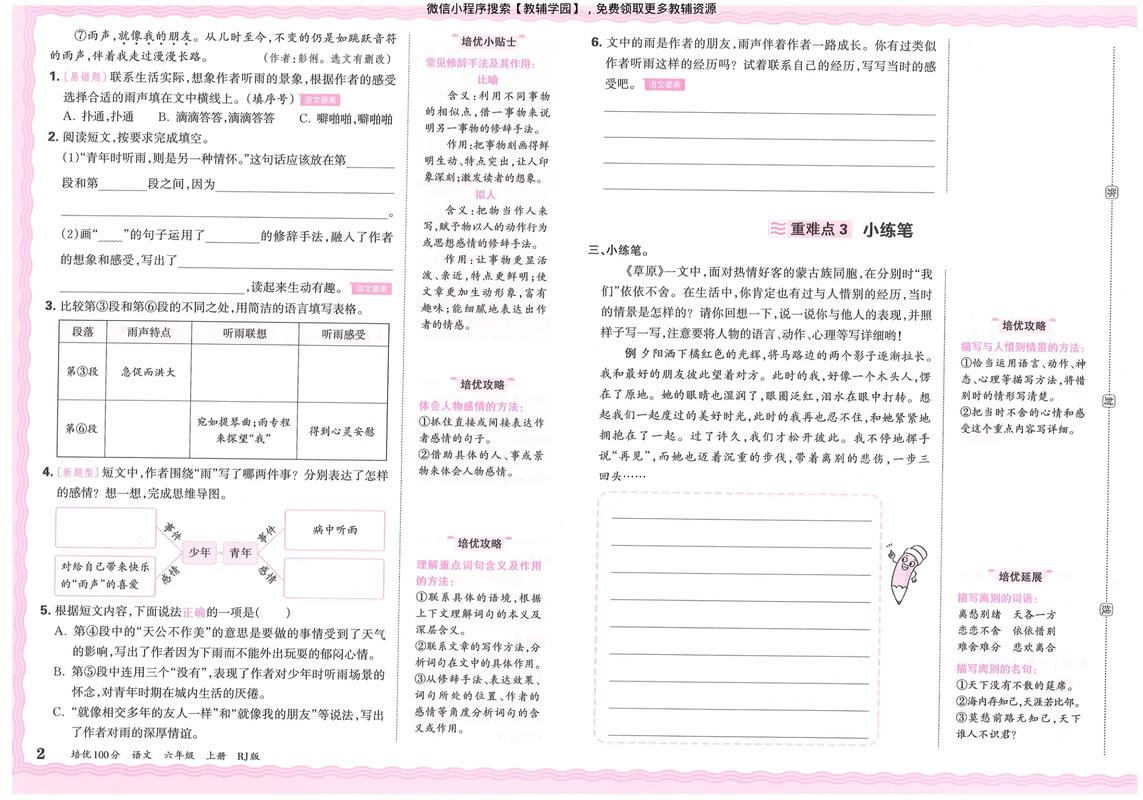 微信小程序搜索【教辅学园】，免费领取更多教辅资源
⑦雨声，就像我的朋友。从儿时至今，不变的仍是如跳跃音符
的雨声，伴着我走过漫漫长路。 （作者：彭俐。选文有删改）
1.〔易错题〕联系生活实际，想象作者听雨的景象，根据作者的感受
选择合适的雨声填在文中横线上。（填序号） 语文要素
A. 扑通，扑通 B. 滴滴答答，滴滴答答 C. 噼啪啪，噼啪啪
2. 阅读短文，按要求完成填空。
（1）“青年时听雨，则是另一种情怀。”这句话应该放在第______
段和第______段之间，因为______
______。
（2）画“﹏﹏”的句子运用了______的修辞手法，融入了作者
的想象和感受，写出了______
______，读起来生动有趣。 语文要素
3. 比较第③段和第⑥段的不同之处，用简洁的语言填写表格。
段落 雨声特点 听雨联想 听雨感受
第③段 急促而洪大
第⑥段 宛如提琴曲；雨专程 得到心灵安慰
来探望“我”
4.〔新题型〕短文中，作者围绕“雨”写了哪两件事？分别表达了怎样
的感情？想一想，完成思维导图。
事件 事件 病中听雨
少年 青年
对给自己带来快乐 感情 感情
的“雨声”的喜爱
5. 根据短文内容，下面说法正确的一项是（ ）
A. 第④段中的“天公不作美”的意思是要做的事情受到了天气
的影响，写出了作者因为下雨而不能外出玩耍的郁闷心情。
B. 第⑤段中连用三个“没有”，表现了作者对少年时听雨场景的
怀念，对青年时期在城内生活的厌倦。
C. “就像相交多年的友人一样”和“就像我的朋友”等说法，写出
了作者对雨的深厚情谊。
2 培优100分 语文 六年级 上册 RJ版
培优小贴士
常见修辞手法及其作用：
比喻
含义：利用不同事物
的相似点，借一事物来说
明另一事物的修辞手法。
作用：把事物刻画得鲜
明生动、特点突出，让人印
象深刻；激发读者的想象。
拟人
含义：把物当作人来
写，赋予物以人的动作行为
或思想感情的修辞手法。
作用：让事物更显活
泼、亲近，特点更鲜明；使
文章更加生动形象，富有
趣味；能细腻地表达出作
者的情感。
培优攻略
体会人物感情的方法：
①抓住直接或间接表达作
者感情的句子。
②借助具体的人、事或景
物来体会人物感情。
培优攻略
理解重点词句含义及作用
的方法：
①联系具体的语境，根据
上下文理解词句的本义及
深层含义。
②联系文章的写作方法，分
析词句在文中的具体作用。
③从修辞手法、表达效果、
词句所处的位置、作者的
感情等角度分析词句的含
义或作用。
6. 文中的雨是作者的朋友，雨声伴着作者一路成长。你有过类似
作者听雨这样的经历吗？试着联系自己的经历，写写当时的感
受吧。 语文要素
重难点 3 小练笔
三、小练笔。
《草原》一文中，面对热情好客的蒙古族同胞，在分别时“我
们”依依不舍。在生活中，你肯定也有过与人惜别的经历，当时
的情景是怎样的？请你回想一下，说一说你与他人的表现，并照
样子写一写，注意要将人物的语言、动作、心理等写详细哟！
例 夕阳洒下橘红色的光辉，将马路边的两个影子逐渐拉长。
我和最好的朋友彼此望着对方。此时的我，好像一个木头人，愣
在了原地。她的眼睛也湿润了，眼圈泛红，泪水在眼中打转。想
起我们一起度过的美好时光，此时的我再也忍不住，和她紧紧地
拥抱在了一起。过了许久，我们才松开彼此。我不停地挥手
说“再见”，而她也迈着沉重的步伐，带着离别的悲伤，一步三
回头……
培优攻略
描写与人惜别情景的方法：
①恰当运用语言、动作、神
态、心理等描写方法，将惜
别时的情形写清楚。
②把当时不舍的心情和感
受这个重点内容写详细。
培优延展
描写离别的词语：
离愁别绪 天各一方
恋恋不舍 依依惜别
难舍难分 悲欢离合
描写离别的名句：
①天下没有不散的筵席。
②海内存知己，天涯若比邻。
③莫愁前路无知己，天下
谁人不识君？
弥
封
线